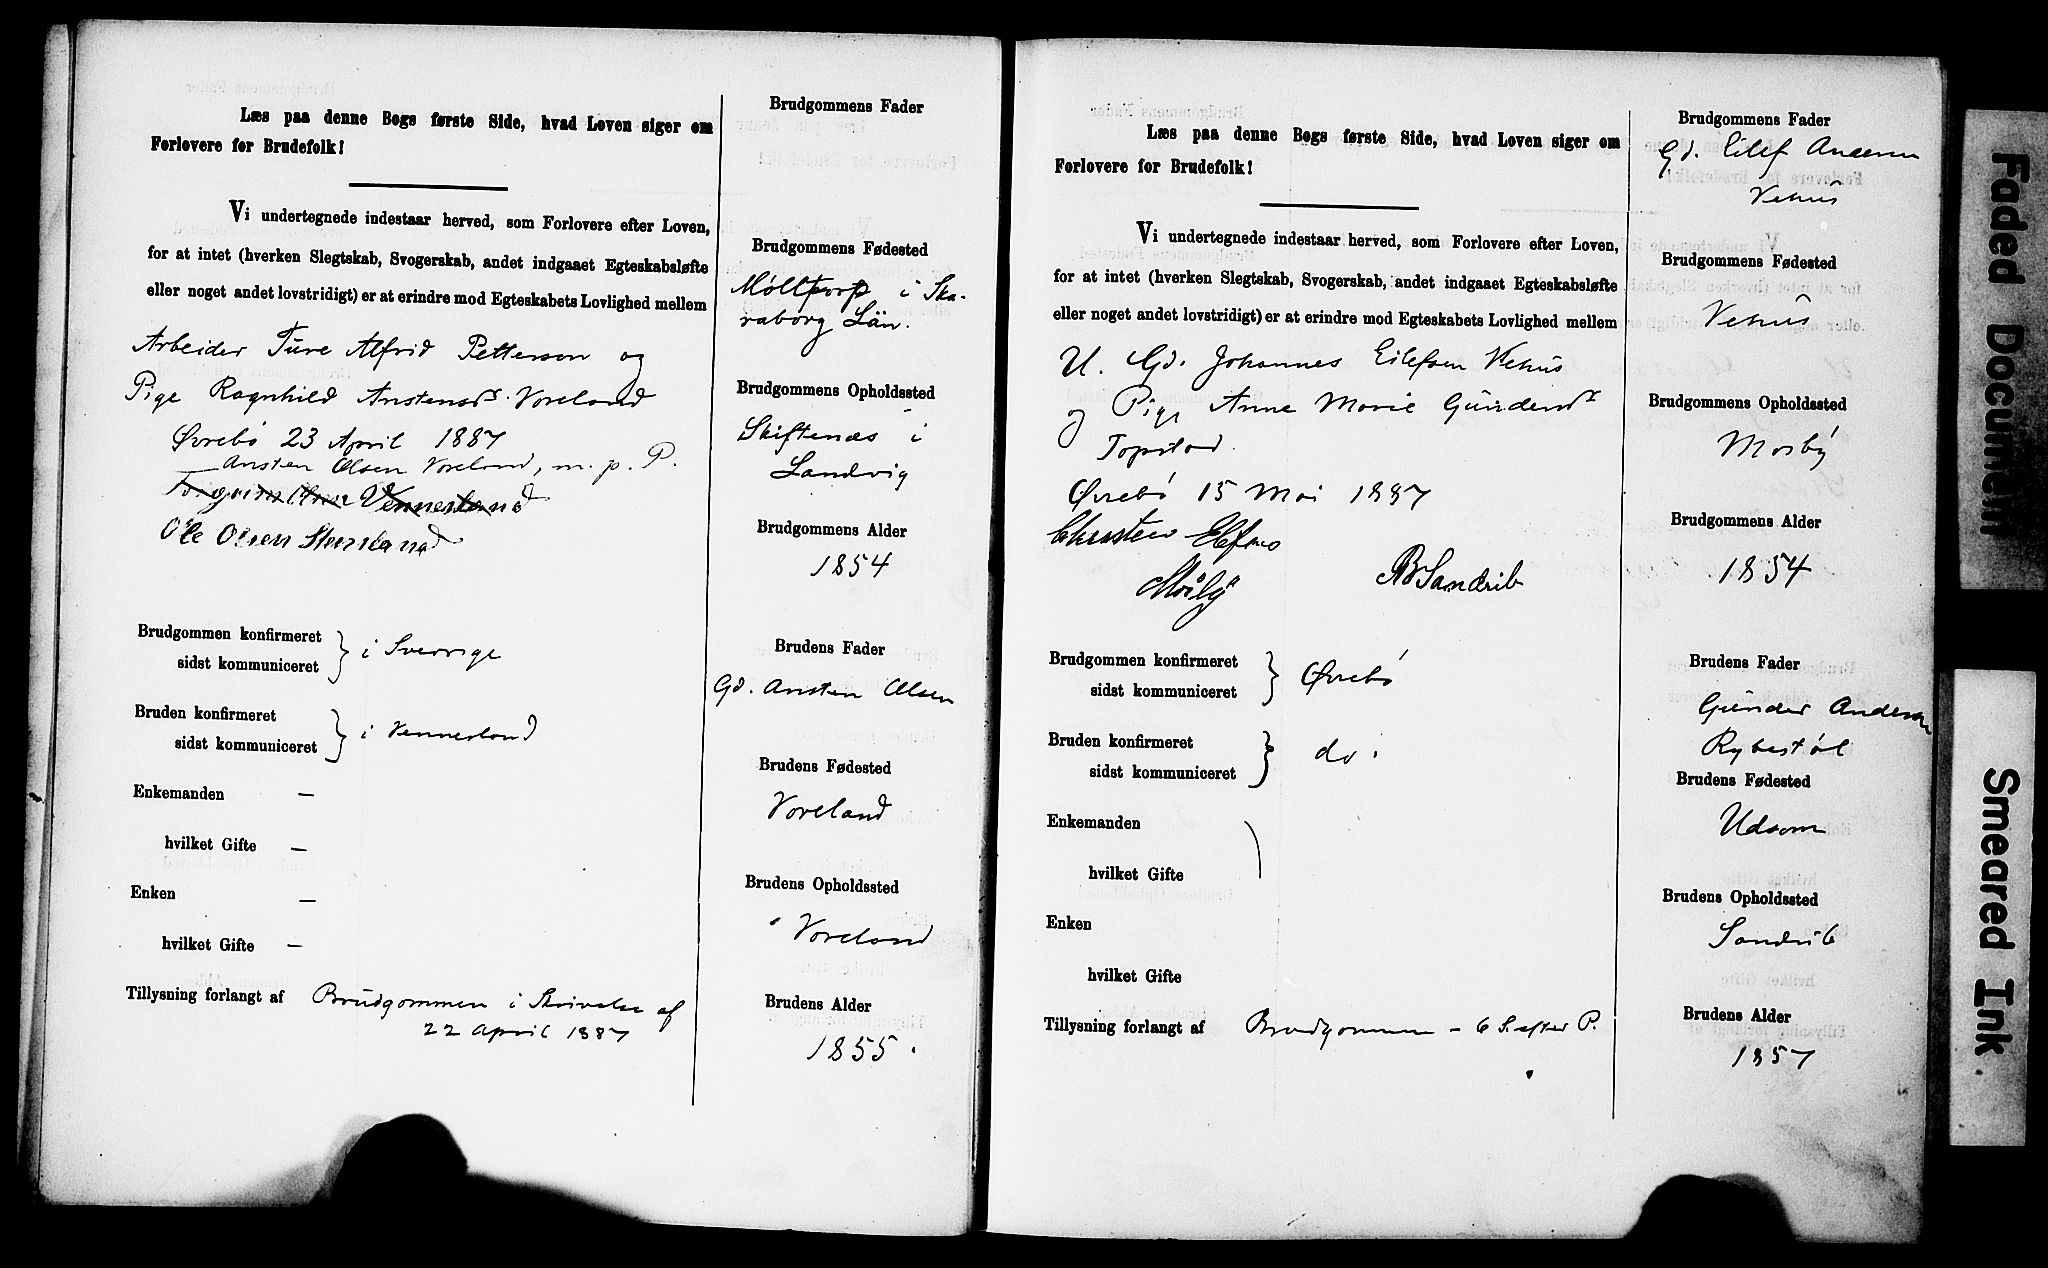 Læs paa denne Bogs første Side, hvad Loven siger om
Forlovere for Brudefolk!
Vi undertegnede indestaar herved, som Forlovere efter Loven,
for at intet (hverken Slegtskab, Svogerskab, andet indgaaet Egteskabsløfte
eller noget andet lovstridigt) er at erindre mod Egteskabets Lovlighed mellem
Arbeider Ture Alfrid Petterson og
Pige Ragnhild Anstensdr. Voreland
Øvrebø 23 April 1887
Ansten Olsen Voreland, m. p. P.
Vennesland
Ole Olsen
Brudgommen konfirmeret
sidst kommuniceret } i Sverrige
Bruden konfirmeret
sidst kommuniceret } i Vennesland
Enkemanden —
hvilket Gifte —
Enken —
hvilket Gifte —
Tillysning forlangt af Brudgommen i Skrivelse af
22 April 1887
Brudgommens Fader
Brudgommens Fødested
Mølltorp i Ska-
raborg Län.
Brudgommens Opholdssted
Skiftenæs i
Landvig
Brudgommens Alder
1854
Brudens Fader
Gd. Ansten Olsen
Brudens Fødested
Voreland
Brudens Opholdssted
Voreland
Brudens Alder
1855.
Læs paa denne Bogs første Side, hvad Loven siger om
Forlovere for Brudefolk!
Vi undertegnede indestaar herved, som Forlovere efter Loven,
for at intet (hverken Slegtskab, Svogerskab, andet indgaaet Egteskabsløfte
eller noget andet lovstridigt) er at erindre mod Egteskabets Lovlighed mellem
U. Gd. Johannes Eilefsen Vehus
og Pige Anne Marie Gundersdr
Topstad.
Øvrebø 15 Mai 1887
Sandrib
Brudgommen konfirmeret
sidst kommuniceret } Øvrebø
Bruden konfirmeret
sidst kommuniceret } do.
Enkemanden
hvilket Gifte
Enken
hvilket Gifte
Tillysning forlangt af Brudgommen – 6 S. efter P.
Brudgommens Fader
Gd. Eilef Andersen
Vehus
Brudgommens Fødested
Vehus
Brudgommens Opholdssted
Mosby
Brudgommens Alder
1854
Brudens Fader
Gunder Andersen
Rybestøl
Brudens Fødested
Udsom
Brudens Opholdssted
Sandrib
Brudens Alder
1857
Faded Document
Smeared Ink